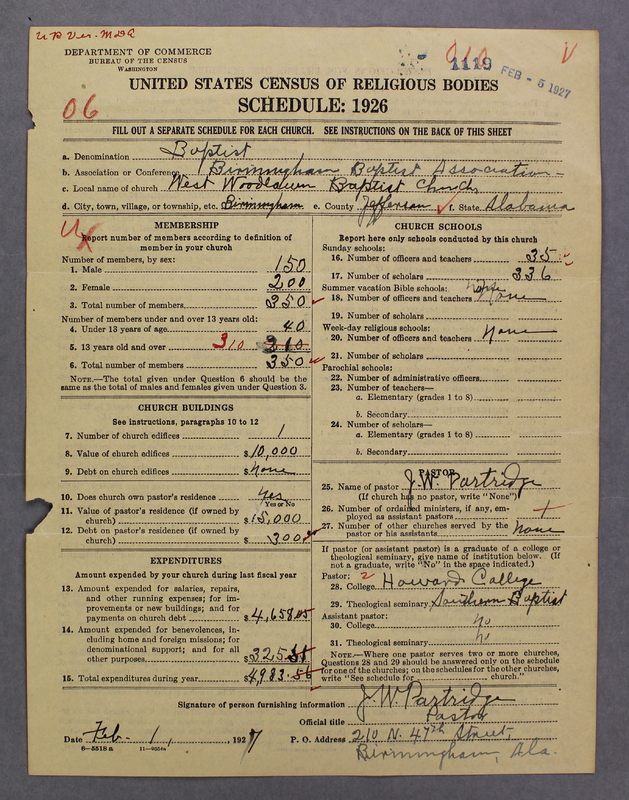 U B Ver. M D A
DEPARTMENT OF COMMERCE
BUREAU OF THE CENSUS
WASHINGTON
1119
FEB - 5 1927
UNITED STATES CENSUS OF RELIGIOUS BODIES
SCHEDULE: 1926
06
FILL OUT A SEPARATE SCHEDULE FOR EACH CHURCH. SEE INSTRUCTIONS ON THE BACK OF THIS SHEET
a. Denomination Baptist
b. Association or Conference Birmingham Baptist Association
c. Local name of church West Woodlawn Baptist Church
d. City, town, village, or township, etc. Birmingham e. County Jefferson f. State Alabama
MEMBERSHIP
Report number of members according to definition of
member in your church
Number of members, by sex:
1. Male 150
2. Female 200
3. Total number of members 350
Number of members under and over 13 years old:
4. Under 13 years of age 40
5. 13 years old and over 310 210
6. Total number of members 350
NOTE.—The total given under Question 6 should be the
same as the total of males and females given under Question 3.
CHURCH BUILDINGS
See instructions, paragraphs 10 to 12
7. Number of church edifices 1
8. Value of church edifices $10,000
9. Debt on church edifices $None
10. Does church own pastor's residence Yes
Yes or No
11. Value of pastor's residence (if owned by
church) $15,000
12. Debt on pastor's residence (if owned by
church) $300
EXPENDITURES
Amount expended by your church during last fiscal year
13. Amount expended for salaries, repairs,
and other running expenses; for im-
provements or new buildings; and for
payments on church debt $4,658.05
14. Amount expended for benevolences, in-
cluding home and foreign missions; for
denominational support; and for all
other purposes $325.
15. Total expenditures during year $4983.56
CHURCH SCHOOLS
Report here only schools conducted by this church
Sunday schools:
16. Number of officers and teachers 35
17. Number of scholars 336
Summer vacation Bible schools: None
18. Number of officers and teachers None
19. Number of scholars
Week-day religious schools:
20. Number of officers and teachers None
21. Number of scholars
Parochial schools:
22. Number of administrative officers
23. Number of teachers—
a. Elementary (grades 1 to 8)
b. Secondary
24. Number of scholars—
a. Elementary (grades 1 to 8)
b. Secondary
PASTOR
25. Name of pastor J.W. Partridge
(If church has no pastor, write "None")
26. Number of ordained ministers, if any, em-
ployed as assistant pastors
27. Number of other churches served by the
pastor or his assistants None
If pastor (or assistant pastor) is a graduate of a college or
theological seminary, give name of institution below. (If
not a graduate, write "No" in the space indicated.)
Pastor: 2
28. College Howard College
29. Theological seminary Southern Baptist
Assistant pastor:
30. College no
31. Theological seminary no
NOTE.—Where one pastor serves two or more churches,
Questions 28 and 29 should be answered only on the schedule
for one of the churches; on the schedules for the other churches,
write "See schedule for church."
Signature of person furnishing information J.W. Partridge
Official title Pastor
Date Feb. 1, 1927 P. O. Address 210 N. 47th Street
8-5518 a
Birmingham, Ala.